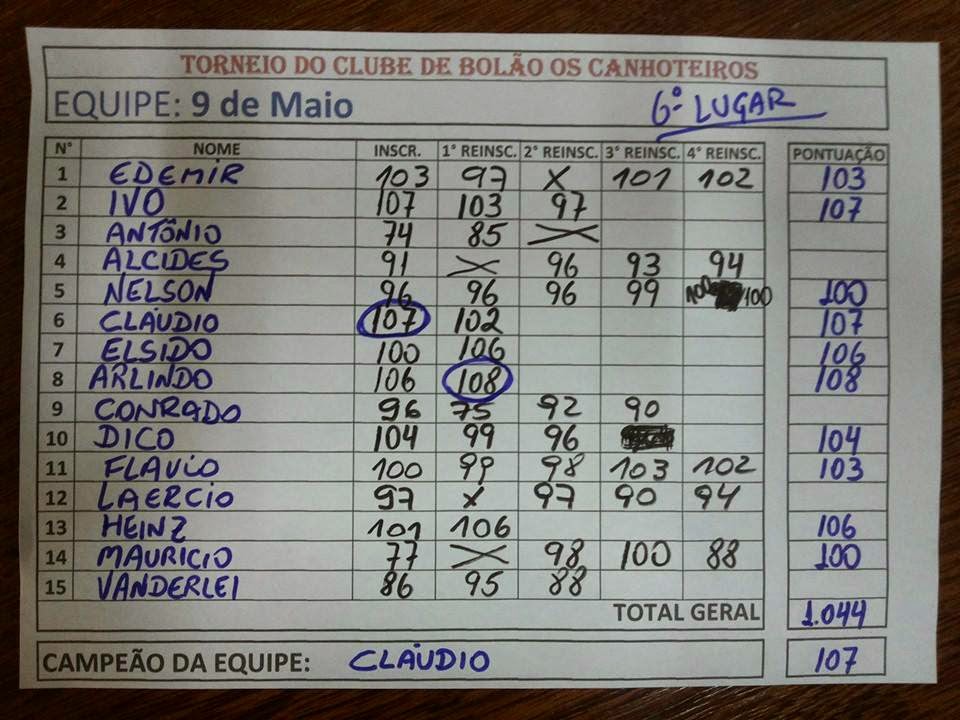 TORNEIO DO CLUBE DE BOLÃO OS CANHOTEIROS
EQUIPE: 9 de Maio 6º LUGAR
N° NOME INSCR. 1° REINSC. 2° REINSC. 3° REINSC. 4° REINSC. PONTUAÇÃO
1 EDEMIR 103 97 X 101 102 103
2 IVO 107 103 97 107
3 ANTÔNIO 74 85 X
4 ALCIDES 91 X 96 93 94
5 NELSON 96 96 96 99 100 100 100
6 CLÁUDIO 107 102 107
7 ELSIDO 100 106 106
8 ARLINDO 106 108 108
9 CONRADO 96 75 92 90
10 DICO 104 99 96 104
11 FLAVIO 100 99 98 103 102 103
12 LAERCIO 97 X 97 90 94
13 HEINZ 101 106 106
14 MAURICIO 77 X 98 100 88 100
15 VANDERLEI 86 95 88
TOTAL GERAL 1.044
CAMPEÃO DA EQUIPE: CLÁUDIO 107